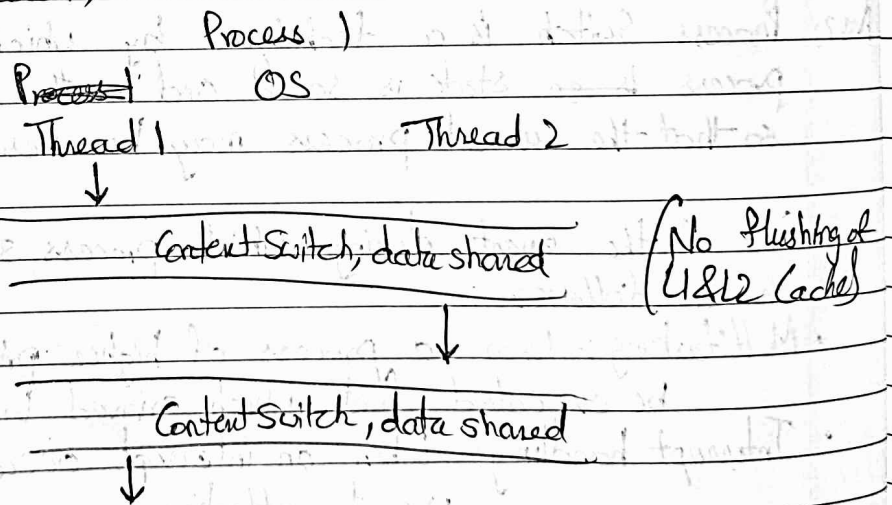 Process 1
OS
Thread 1 Thread 2
Context Switch, data shared
(No flushing of
L1&L2 Cache)
Context Switch, data shared